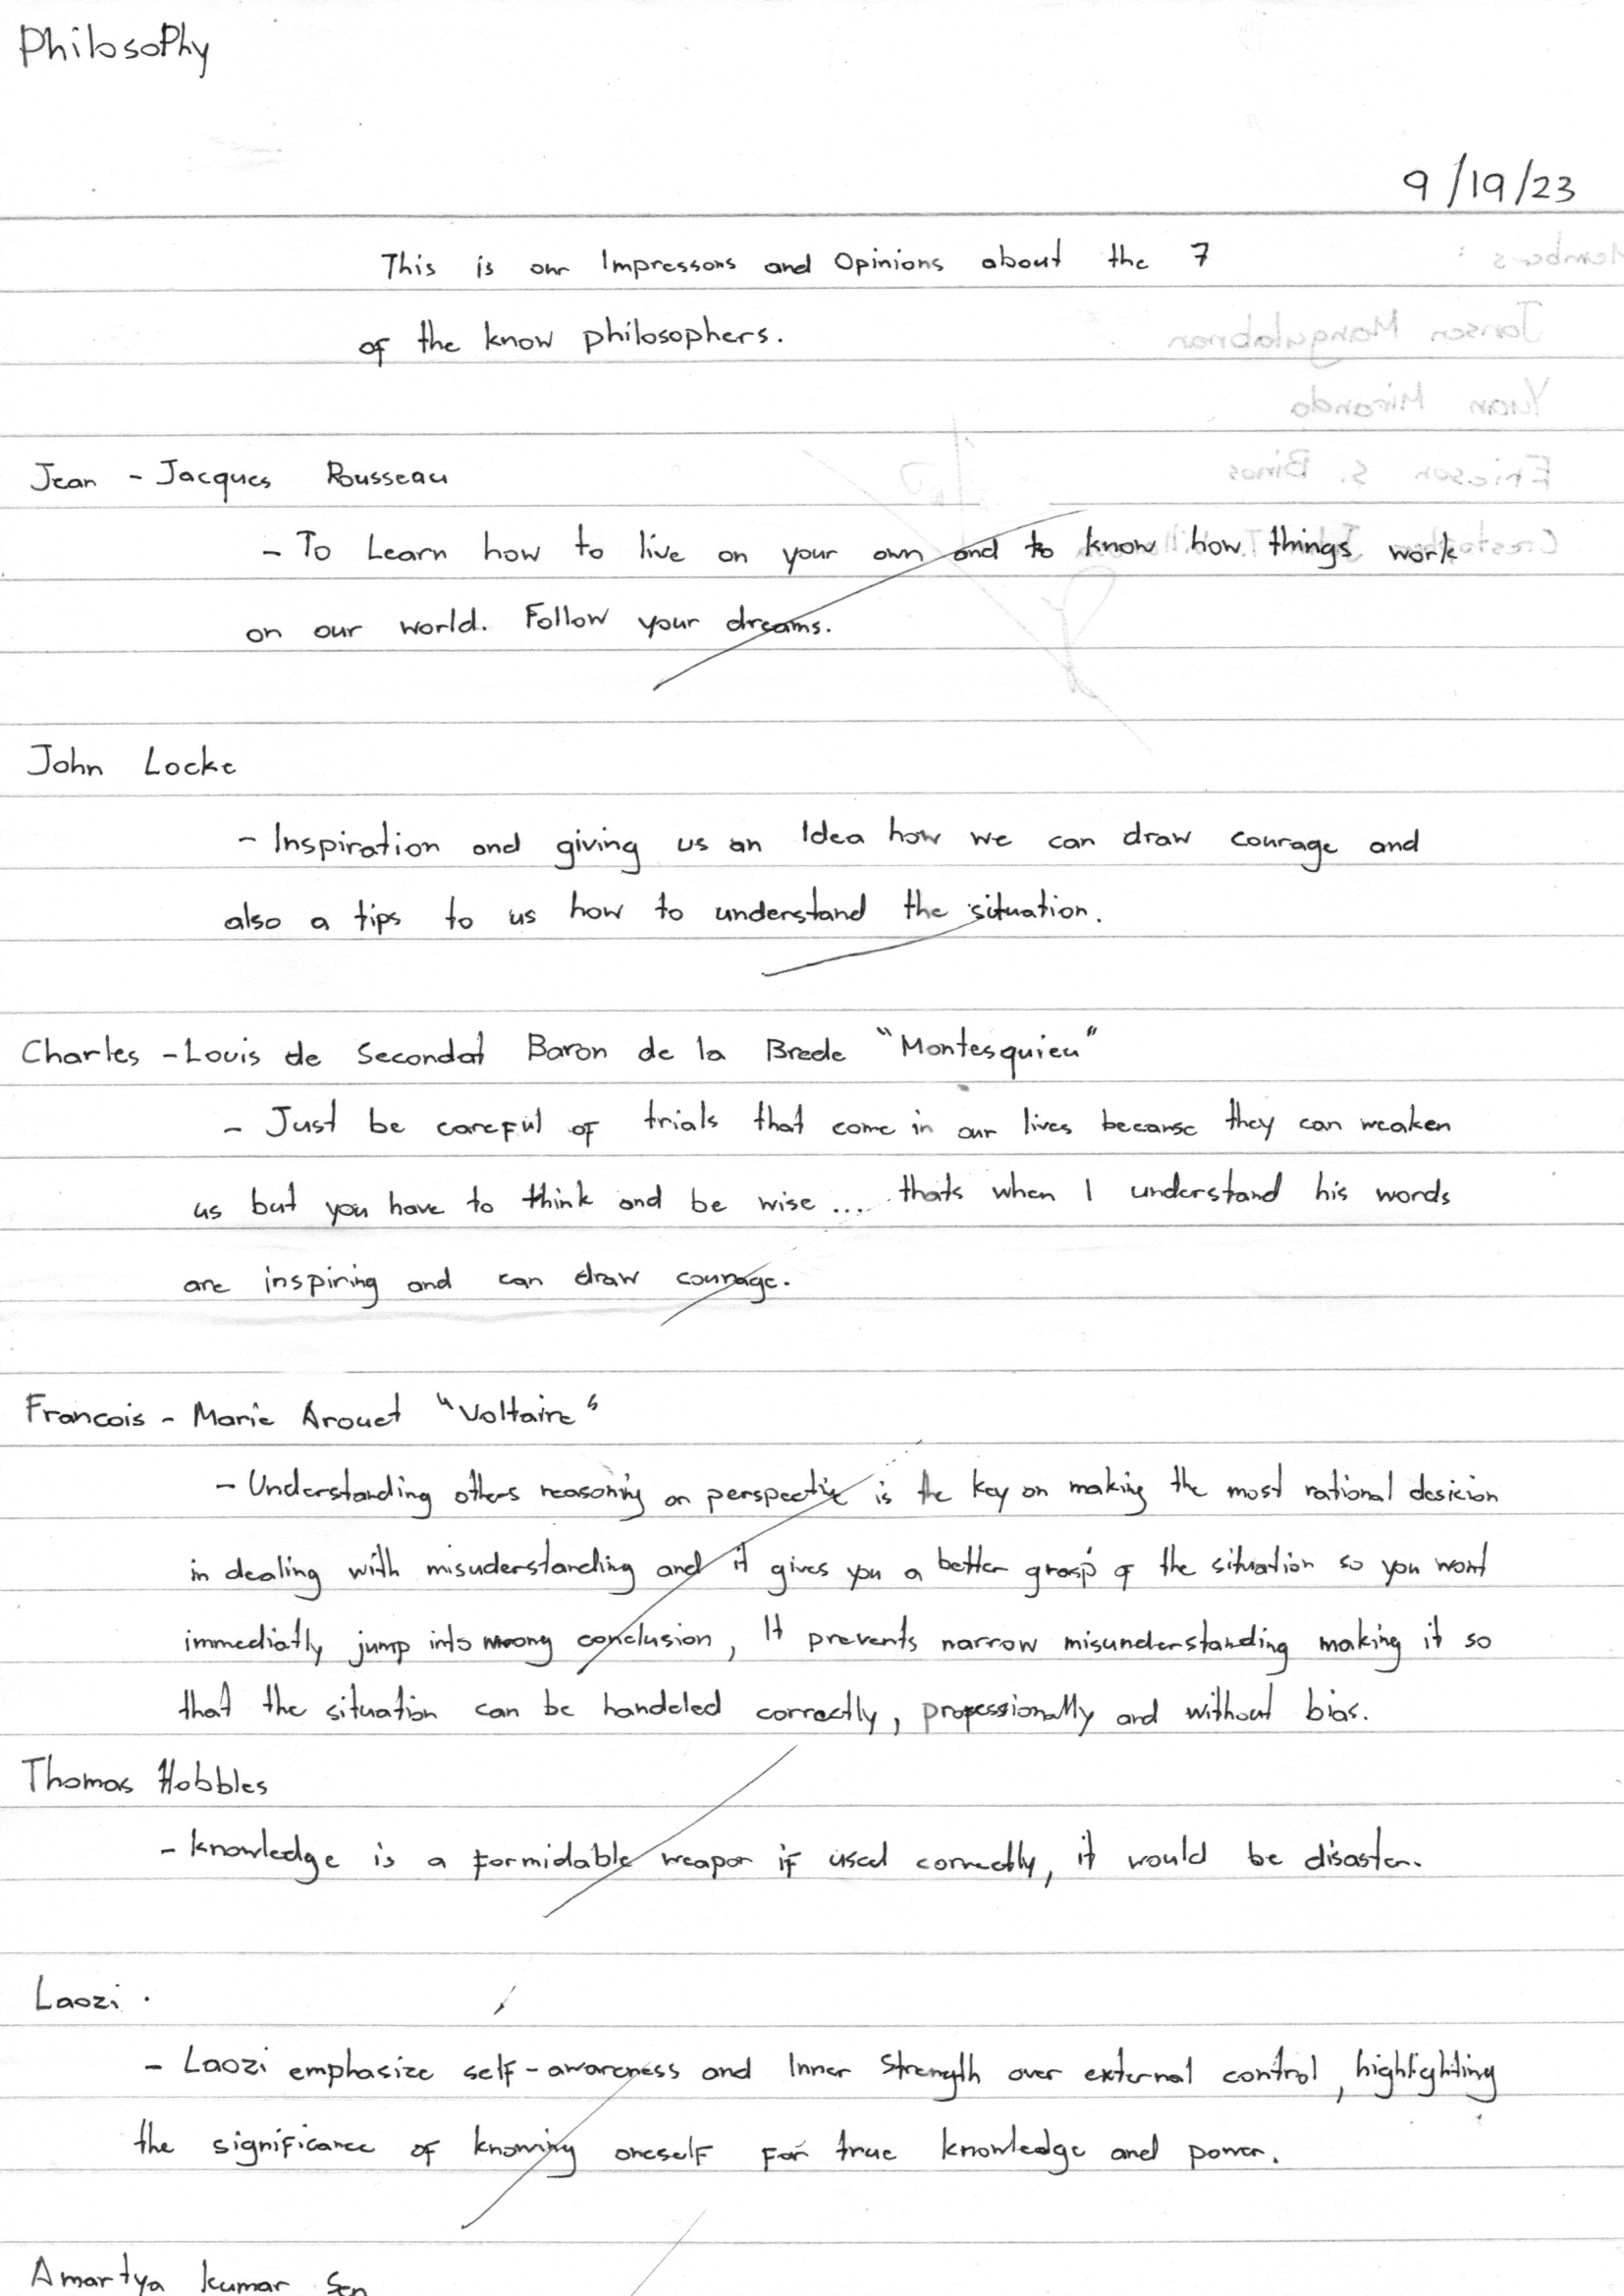 Philosophy
9/19/23
This is our Impressons and Opinions about the 7
of the know philosophers.
Jean - Jacques Rousseau
- To Learn how to live on your own and to know how things work
on our world. Follow your dreams.
John Locke
- Inspiration and giving us an Idea how we can draw courage and
also a tips to us how to understand the situation.
Charles - Louis de Secondat Baron de la Brede "Montesquieu"
- Just be careful of trials that come in our lives because they can weaken
us but you have to think and be wise ... thats when I understand his words
are inspiring and can draw courage.
Francois - Marie Arouet "Voltaire"
- Understanding others reasoning or perspective is the key on making the most rational desicion
in dealing with misuderstanding and it gives you a better grasp of the situation so you wont
immediatly jump into wrong conclusion, It prevents narrow misunderstanding making it so
that the situation can be handeled correctly, professionally and without bias.
Thomas Hobbles
- knowledge is a formidable weapon if used correctly, it would be disaster.
Laozi .
- Laozi emphasize self-awareness and Inner Strength over external control, highlighting
the significance of knowing oneself for true knowledge and power.
Amartya kumar Sen
Members :
Jansen Mangulabnan
Yuan Miranda
Ericson S. Binos